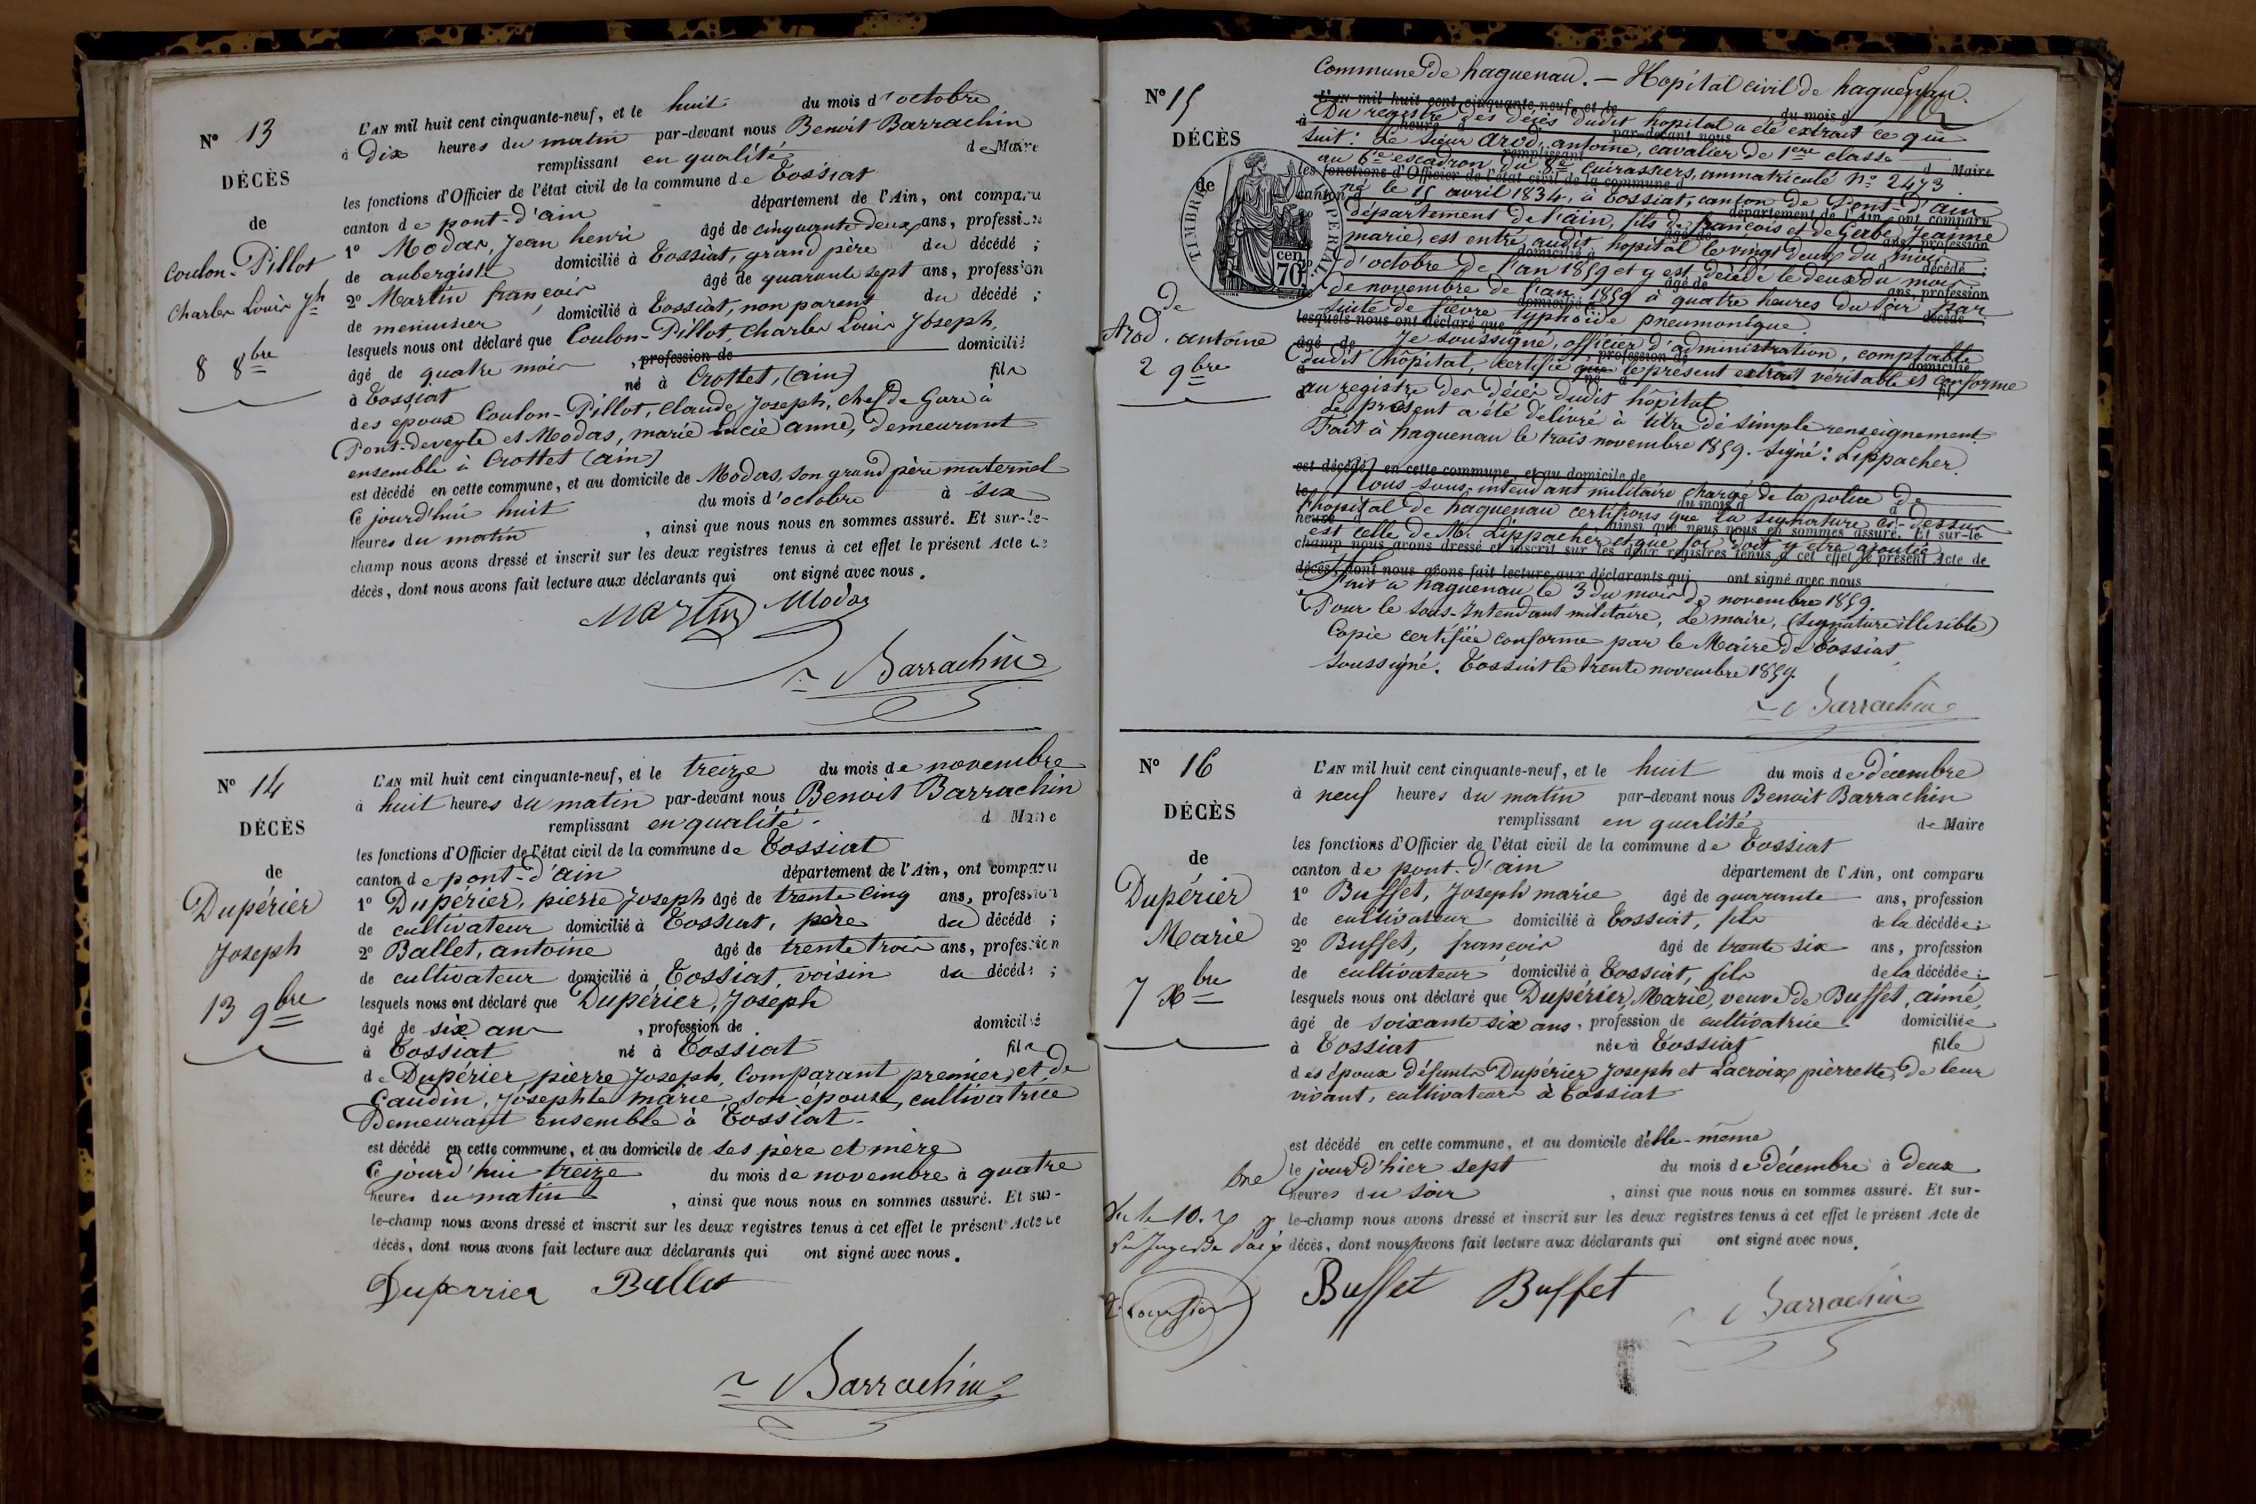 N° 13
DÉCÈS
de
Coulon-Pillot
Charles Louis Jh
8 8bre
L'AN mil huit cent cinquante-neuf, et le huit du mois d'octobre
à Dix heures du matin par-devant nous Benoit Barrachin
remplissant en qualité de Maire
les fonctions d'Officier de l'état civil de la commune de Tossiat
canton de pont-d'ain département de l'Ain, ont comparu
1° Modas, Jean henri âgé de cinquante deux ans, profession
de aubergiste domicilié à Tossiat, grand père du décédé ;
2° Martin françois âgé de quarante sept ans, profession
de menuisier domicilié à Tossiat, non parent du décédé ;
lesquels nous ont déclaré que Coulon-Pillot, Charles Louis Joseph,
âgé de quatre mois , profession de domicilié
à Tossiat né à Crottet, (ain) fils
des époux Coulon-Pillot, Claude, Joseph, chef de Gare à
Pont-deveyle et Modas, marie Lucie anne, demeurant
ensemble à Crottet (ain)
est décédé en cette commune, et au domicile de Modas, son grand père maternel
Ce jourd'hui huit du mois d'octobre à six
heures du matin , ainsi que nous nous en sommes assuré. Et sur-le-
champ nous avons dressé et inscrit sur les deux registres tenus à cet effet le présent Acte de
décès, dont nous avons fait lecture aux déclarants qui ont signé avec nous.
Martin Modas
Barrachin
N° 14
DÉCÈS
de
Dupérier
Joseph
13 9bre
L'AN mil huit cent cinquante-neuf, et le treize du mois de novembre
à huit heures du matin par-devant nous Benoit Barrachin
remplissant en qualité d Maire
les fonctions d'Officier de l'état civil de la commune de Tossiat
canton de pont-d'ain département de l'Ain, ont comparu
1° Dupérier, pierre Joseph âgé de trente cinq ans, profession
de cultivateur domicilié à Tossiat, père du décédé ;
2° Ballet, antoine âgé de trente trois ans, profession
de cultivateur domicilié à Tossiat, voisin du décédé ;
lesquels nous ont déclaré que Dupérier, Joseph
âgé de six ans , profession de domicilié
à Tossiat né à Tossiat fils
de Dupérier, pierre Joseph, Comparant premier, et de
Gaudin, Josephte marie, son épouse, cultivatrice
Demeurant ensemble à Tossiat.
est décédé en cette commune, et au domicile de ses père et mère
Ce jourd'hui treize du mois de novembre à quatre
heures du matin , ainsi que nous nous en sommes assuré. Et sur-
le-champ nous avons dressé et inscrit sur les deux registres tenus à cet effet le présent Acte de
décès, dont nous avons fait lecture aux déclarants qui ont signé avec nous.
Duperrier Ballet
Barrachin
N° 15
DÉCÈS
de
TIMBRE IMPERIAL
70 cen
De
Arod, antoine
2 9bre
Commune de haguenau. — Hopital civil de haguenau.
L'AN mil huit cent cinquante-neuf, et le du mois d
Du registre des décès dudit hopital a été extrait ce qui
à heure d par-devant nous
suit : Le sieur Arod, antoine, cavalier de 1ere classe
remplissant d Maire
au 6e escadron du 8e cuirassiers, immatriculé N° 2473
les fonctions d'Officier de l'état civil de la commune d
né le 15 avril 1834, à Tossiat, canton de Pont-d'ain
canton d département de l'Ain, ont comparu
département de l'ain, fils de françois et de Gerbe, Jeanne
âgé de ans, profession
marie, est entré audit hopital le vingt deux du mois
domicilié à d décédé ;
d'octobre de l'an 1859 et y est décédé le deux du mois
âgé de ans, profession
de novembre de l'an 1859 à quatre heures du soir par
domicilié à d décédé
suite de fièvre typhoïde pneumonique.
lesquels nous ont déclaré que
Je soussigné, officier d'administration, comptable
âgé de , profession de domicilié
dudit hôpital, certifie que le présent extrait véritable et conforme
à né à fil
au registre des décès dudit hôpital
Le présent a été délivré à titre de simple renseignement
Fait à haguenau le trois novembre 1859. signé : Lippacher.
est décédé en cette commune, et au domicile de
Nous sous-intendant militaire chargé de la police de
le du mois d à
l'hopital de haguenau certifions que la signature ci-dessus
heure d ainsi que nous nous en sommes assuré. Et sur-le
est celle de Mr Lippacher, et que foi doit y être ajoutée.
champ nous avons dressé et inscrit sur les deux registres tenus à cet effet le présent Acte de
décès, dont nous avons fait lecture aux déclarants qui ont signé avec nous
Fait à haguenau le 3 du mois de novembre 1859.
Pour le Sous-Intendant militaire, Le maire, (signature illisible)
Copie certifiée conforme par le Maire de Tossiat,
soussigné. Tossiat le trente novembre 1859.
Barrachin
N° 16
DÉCÈS
de
Dupérier
Marie
7 Xbre
L'AN mil huit cent cinquante-neuf, et le huit du mois de décembre
à neuf heures du matin par-devant nous Benoit Barrachin
remplissant en qualité de Maire
les fonctions d'Officier de l'état civil de la commune de Tossiat
canton de pont-d'ain département de l'Ain, ont comparu
1° Buffet, Joseph marie âgé de quarante ans, profession
de cultivateur domicilié à Tossiat, fils de la décédée ;
2° Buffet, françois âgé de trente six ans, profession
de cultivateur domicilié à Tossiat, fils de la décédée ;
lesquels nous ont déclaré que Dupérier, Marie, veuve de Buffet, aimé,
âgé de soixante six ans, profession de cultivatrice domiciliée
à Tossiat née à Tossiat fille
des époux défunts Dupérier Joseph et Lacroix pierrette, de leur
vivant, cultivateurs à Tossiat
est décédé en cette commune, et au domicile d'elle-même
le jour d'hier sept du mois de décembre à deux
heures du soir , ainsi que nous nous en sommes assuré. Et sur-
le-champ nous avons dressé et inscrit sur les deux registres tenus à cet effet le présent Acte de
décès, dont nous avons fait lecture aux déclarants qui ont signé avec nous.
Buffet Buffet
Barrachin